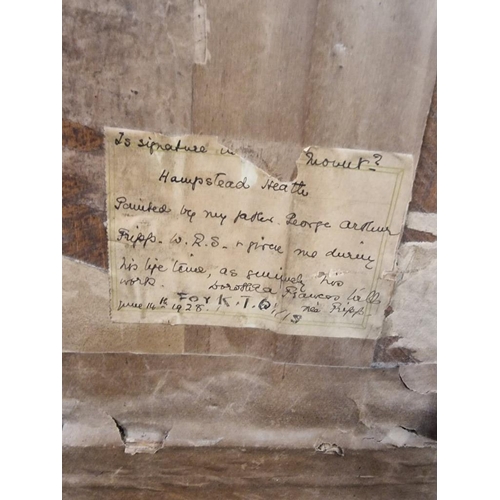 Is signature in mount?
Hampstead Heath
Painted by my father George Arthur
Fripp. W. R. S. & given me during
his life time, as genuinely his
work. Dorothea Frances
née Fripp
June 16th 1928
For K. T. G.